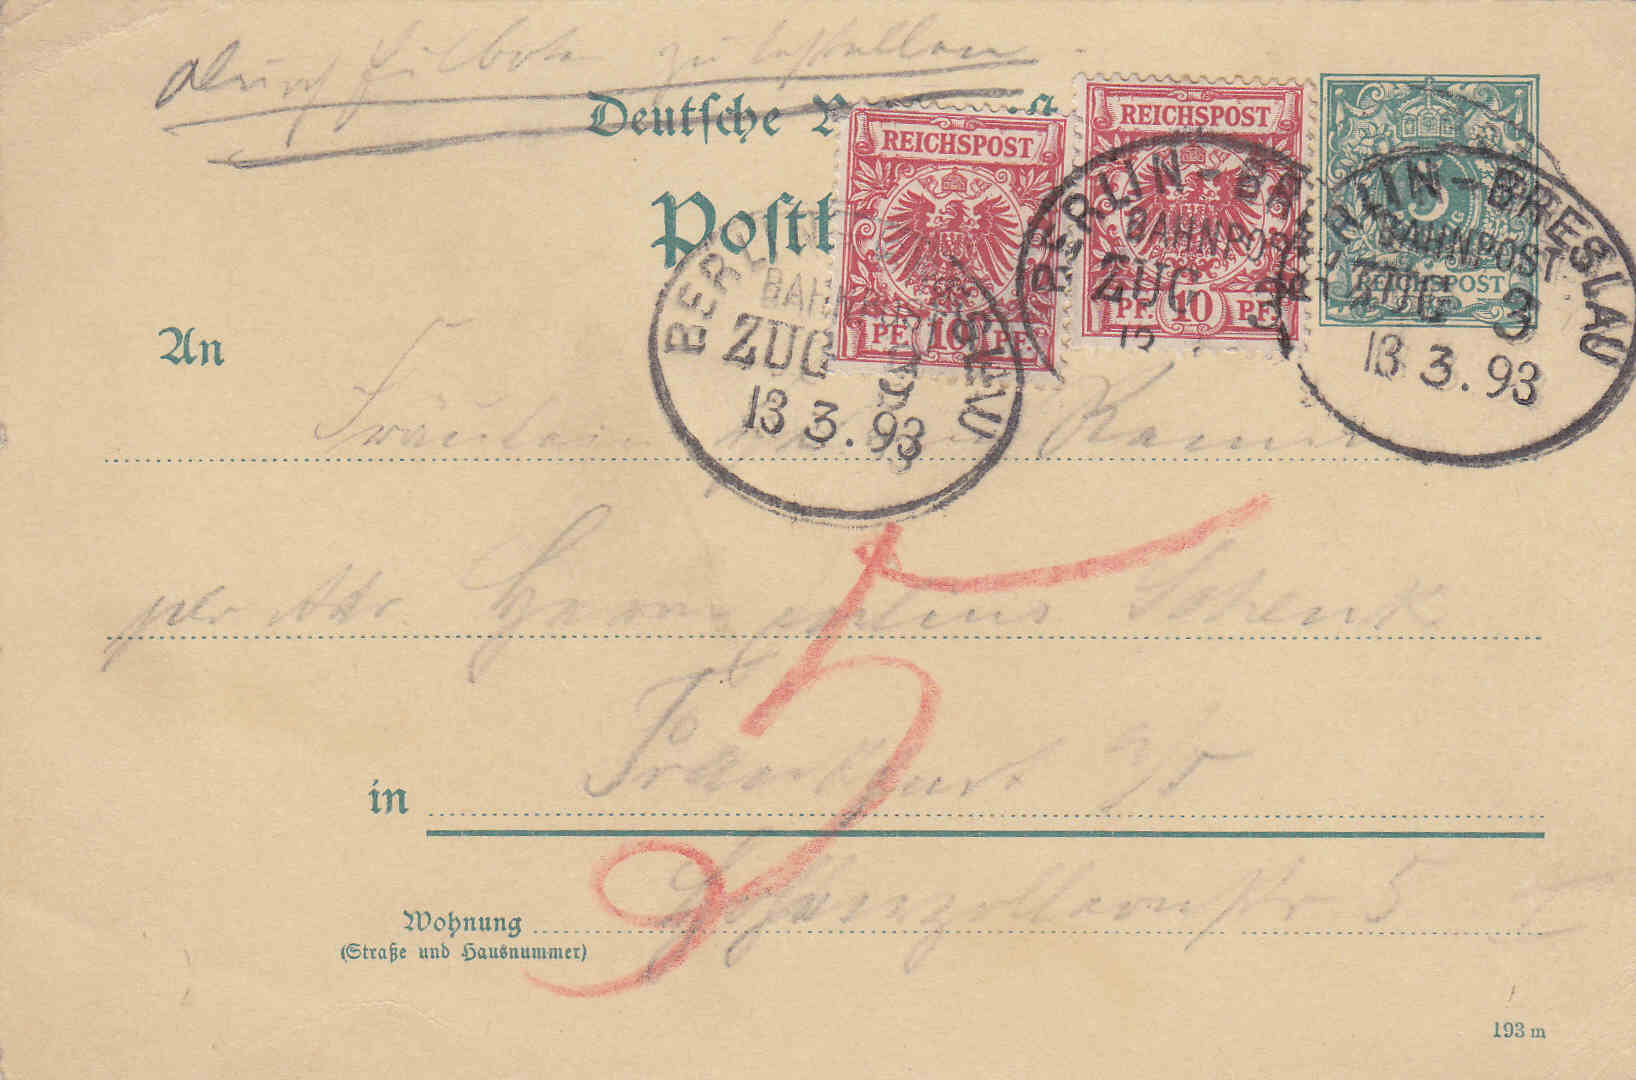 Durch Eilboten zu bestellen.
Deutsche
REICHSPOST
REICHSPOST
PF. 10 PF.
PF. 10 PF.
5
REICHSPOST
BERLIN - BRESLAU
BAHNPOST
ZUG 3
13 3. 93
BERLIN - BRESLAU
BAHNPOST
ZUG 3
BERLIN - BRESLAU
BAHNPOST
ZUG 3
13 3. 93
An
Fräulein
per Adr. Herrn Julius Schenk
in Frankfurt a/O
5
Wohnung Hohenzollernstr 5 I
(Straße und Hausnummer)
193 m